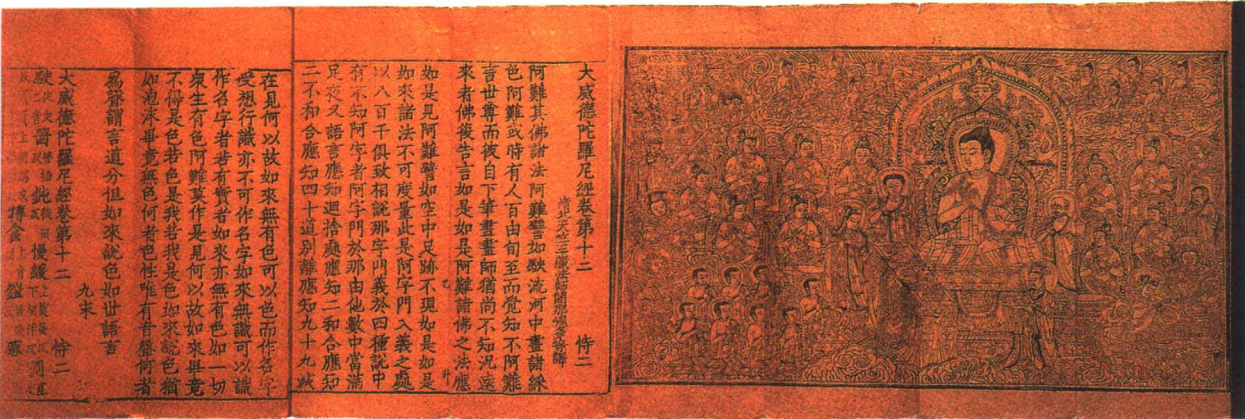 大威德陀羅尼經卷第十二 恃二
隋北天竺三藏法師闍那崛多等譯
阿難其佛諸法阿難譬如駃流河中畫諸綵
色阿難或時有人百由旬至而覺知不阿難
言世尊而彼自下筆畫畫師猶尚不知況遠
來者佛復告言如是如是阿難諸佛之法應
如是見阿難譬如空中足跡不現如是如是
如來諸法不可度量此是阿字門入義之處
以八百千俱致相說那字門義於四種說中
有不知阿字者阿字門於那由他數中當滿
足夜叉語言應知迴捨處應知二和合應知
二不和合應知四十道別離應知九十九減
在見何以故如來無有色可以色而作名字
受想行識亦不可作名字如來無識可以識
作名字者若有實者如來亦無有色如一切
衆生有色阿難莫作是見何以故如來畢竟
不得是色若色是我若我是色如來說色猶
如泡沫畢竟無色何者色性唯有音聲何者
為聲謂言道分但如來說色如世語言
九末
大威德陀羅尼經卷第十二 恃二
駃 醫 鈍 慢緩
摶食 鎧